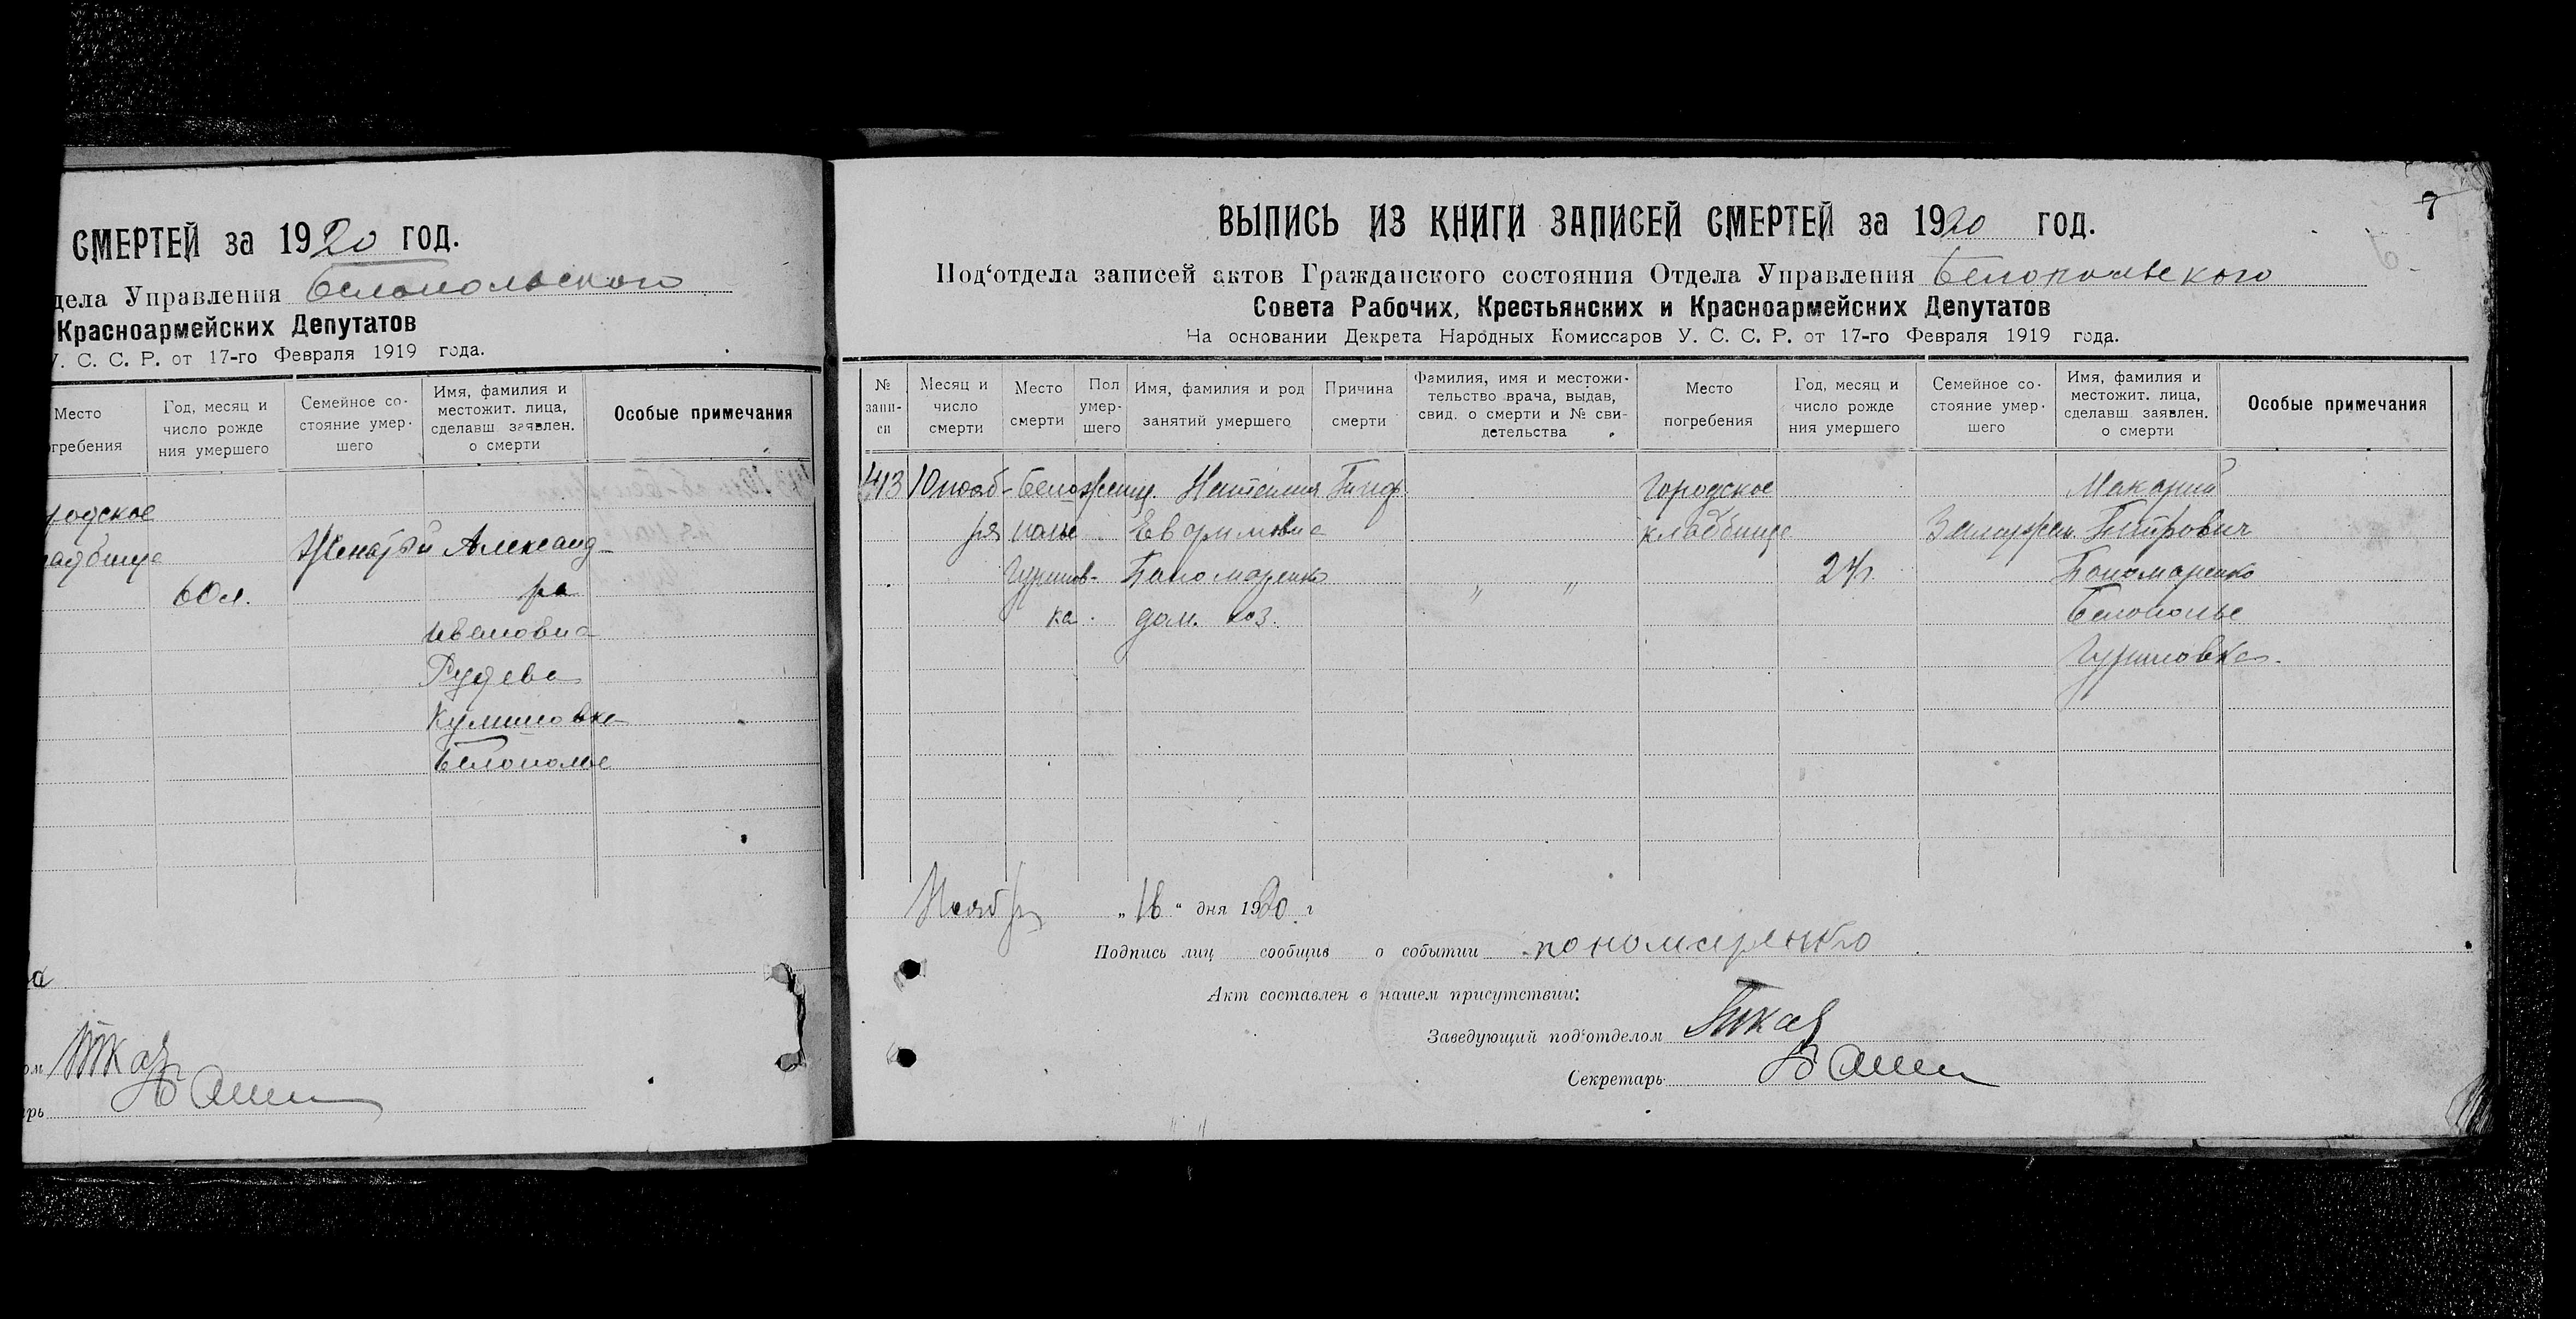 СМЕРТЕЙ за 1920 год.
дела Управления Белопольского
Красноармейских Депутатов
У. С. С. Р. от 17-го Февраля 1919 года.
Место погребения
Год, месяц и число рожде ния умершего
Семейное со- стояние умер- шего
Имя, фамилия и местожит. лица, сделавш заявлен. о смерти
Особые примечания
родское
кладбище
60 л.
Женатый
Александ-
ра
Ивановна
Рудева
Белополье
Ткач
7
ВЫПИСЬ ИЗ КНИГИ ЗАПИСЕЙ СМЕРТЕЙ за 1920 год.
Под‘отдела записей актов Гражданского состояния Отдела Управления Белопольского
Совета Рабочих, Крестьянских и Красноармейских Депутатов
На основании Декрета Народных Комиссаров У. С. С. Р. от 17-го Февраля 1919 года.
№ запи- си
Месяц и число смерти
Место смерти
Пол умер- шего
Имя, фамилия и род занятий умершего
Причина смерти
Фамилия, имя и местожи- тельство врача, выдав, свид. о смерти и № сви- детельства
Место погребения
Год, месяц и число рожде ния умершего
Семейное со- стояние умер- шего
Имя, фамилия и местожит. лица, сделавш. заявлен. о смерти
Особые примечания
413
10 нояб-
ря
Бело
полье
Женщ.
Пономаренко
дом. хоз.
Тиф
" "
Городское
кладбище
Замужем.
Макарий
Петрович
Пономаренко
Белополье
Ноября „ 16 “ дня 1920 г
Подпись лиц сообщив о событии пономаренко
Акт составлен в нашем присутствии:
Заведующий под‘отделом Ткач
Секретарь